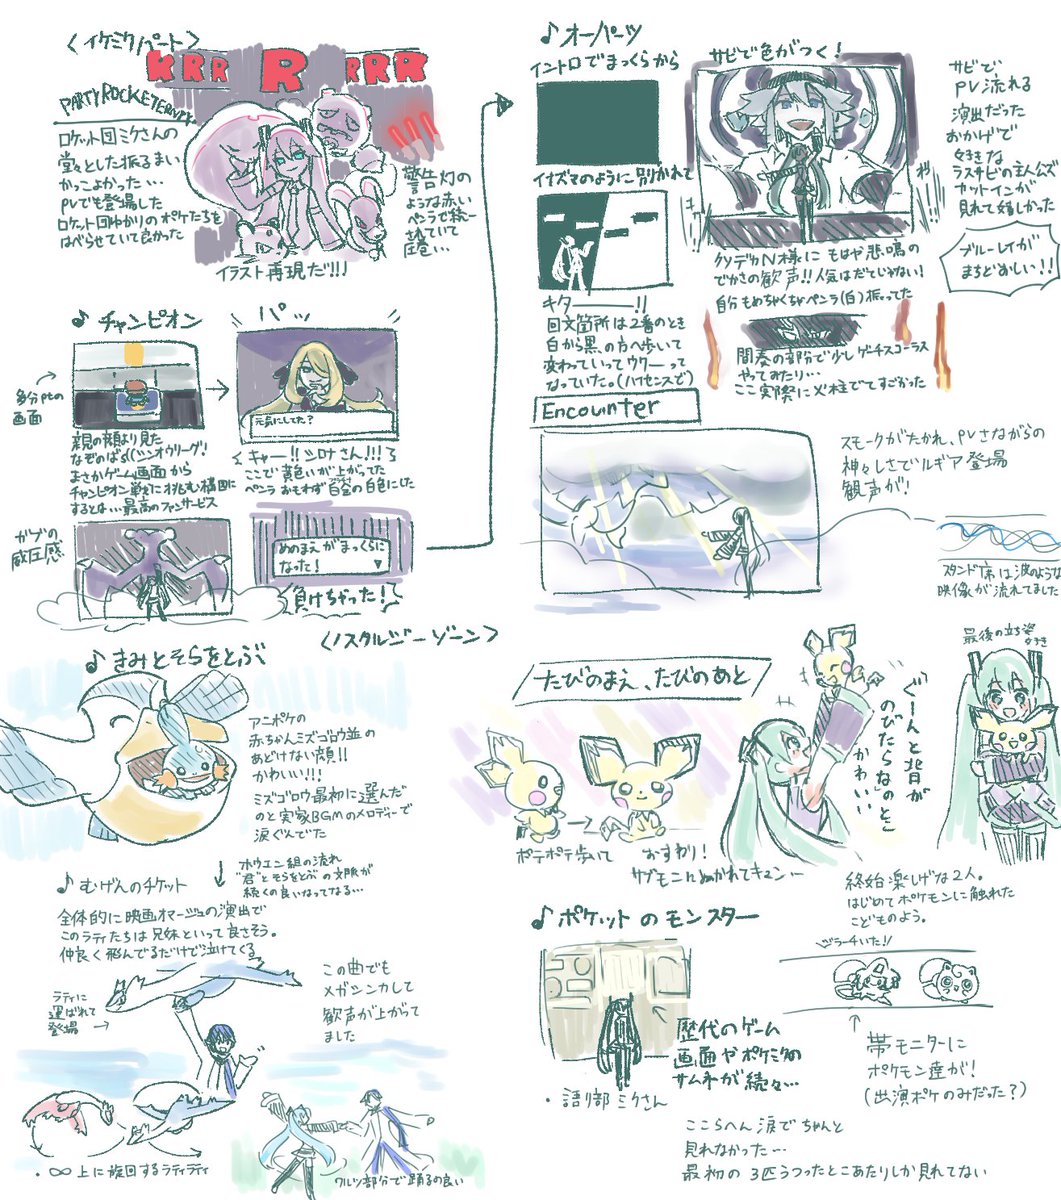 〈イケミクパート〉
RRR R RRR
PARTYROCKETERNITY
ロケット団ミクさんの
堂々とした振るまい
かっこよかった…
PVでも登場した
ロケット団ゆかりのポケたちを
はべらせていて良かった
イラスト再現だ!!!
警告灯の
ような赤い
ペンラで統一
されていて
圧巻…
♪チャンピオン
多分ptの
画面
親の顔より見た
シンオウリーグ!
まさかゲーム画面から
チャンピオン戦に挑む構図に
するとは…最高のファンサービス
パッ
元気にしてた?
キャー!!シロナさん!!!
ここで黄色いが上がってた
ペンラ おもわず白金の白色にした
ガブの
威圧感
めのまえ が まっくらに
なった!
負けちゃった!
♪オーパーツ
イントロでまっくらから
イナズマのように別かれて
キター――!!
回文箇所は2番のとき
白から黒の方へ歩いて
変わっていってウワーって
なっていた。(ハイセンスで)
サビで色がつく!
サビで
PV流れる
演出だった
おかげで
好きな
ラスサビの主人ムズ
カットインが
見れて嬉しかった
ブルーレイが
まちどおしい!!
クソデカN様に もはや悲鳴の
でかさの歓声!!人気はだてじゃない!
自分もめちゃくちゃペンラ(白)振ってた
間奏の部分で少しゲーチスコーラス
やってみたり…
ここ実際に火柱でてすごかった
Encounter
スモークがたかれ、PVさながらの
神々しさでルギア登場
観声が!
スタンド席は波のような
映像が流れてました
〈ノスタルジーゾーン〉
♪きみとそらをとぶ
アニポケの
赤ちゃんミズゴロウ並の
あどけない顔!!
かわいい!!!
ミズゴロウ最初に選んだ
のと実家BGMのメロディーで
涙ぐんでた
ホウエン組の流れ
"君"とそらをとぶの文脈が
続くの良いなってなる…
♪むげんのチケット
全体的に映画オマージュの演出で
このラティたちは兄妹といって良さそう。
仲良く飛んでるだけで泣けてくる
ラティに
運ばれて
登場
この曲でも
メガシンカして
歓声が上がって
ました
・∞上に旋回するラティラティ
ワルツ部分で踊るの良い
たびのまえ、たびのあと
ポテポテ歩いて
おすわり!
サブモニにぬかれてキュン…
ぐーんと背が
のびたらなのと、
かわいい
最後の立ち姿
好き
終始楽しげな2人。
はじめてポケモンに触れた
こどものよう。
♪ポケットのモンスター
・語り部ミクさん
歴代のゲーム
画面やポケミクの
サムネが続々…
ジラーチいた!!
帯モニターに
ポケモン達が!
(出演ポケのみだった?)
ここらへん涙でちゃんと
見れなかった…
最初の3匹うつったとこあたりしか見れてない